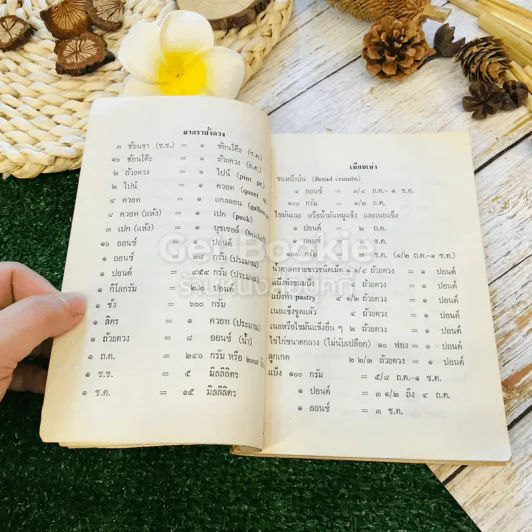 มาตราชั่งตวง
๓ ช้อนชา (ช.ช.) = ๑ ช้อนโต๊ะ (ช.ต.)
๑๖ ช้อนโต๊ะ = ๑ ถ้วยตวง (ถ.ต.)
๒ ถ้วยตวง = ๑ ไปน์ (pint pt.)
๒ ไปน์ = ๑ ควอท
๔ ควอท = ๑ แกลลอน
๘ ควอท (แห้ง) = ๑ เปค (peck)
๓ เปค (แห้ง) = ๑ บุชเชลล์
๑๖ ออนซ์ = ๑ ปอนด์
๑ ออนซ์ = กรัม (ประมาณ)
๑ ปอนด์ = กรัม (ประมาณ)
๑ กิโลกรัม = ปอนด์ (ประมาณ)
๑ ชั่ง = ๖๐๐ กรัม
๑ ลิตร = ๑ ควอท (ประมาณ)
๑ ถ้วยตวง = ๘ ออนซ์ (น้ำ)
๑ ถ.ต. = ๒๔๐ กรัม หรือ
๑ ช.ช. = ๕ มิลลิลิตร
๑ ช.ต. = ๑๕ มิลลิลิตร
เทียบเท่า
ขนมปังป่น (Bread crumbs)
๔ ออนซ์ = ๓/๔ ถ.ต.-๑ ช.ต.
๑๐๐ กรัม = ๑/๒ ถ.ต.
ไขมันเนย หรือน้ำมันหมูแข็ง และเนยแข็ง
๑ ปอนด์ = ๒ ถ.ต.
๑ ออนซ์ = ๒ ช.ต.
๑๐๐ กรัม = ช.ต. (๑/๒ ถ.ต.-๑ ช.ต.)
น้ำตาลทรายขาวชนิดเม็ด ๒ ๑/๔ ถ้วยตวง = ๑ ปอนด์
แป้งทำขนมเค้ก ถ้วยตวง = ๑ ปอนด์
แป้งทำ pastry ๔ ถ้วยตวง = ๑ ปอนด์
เนยแข็งขูดแล้ว ๔ ถ้วยตวง = ๑ ปอนด์
เนยหรือไขมันแข็งอื่น ๆ ๒ ถ้วยตวง = ๑ ปอนด์
ไข่ไก่ขนาดกลาง (ไม่นับเปลือก) ๑๐ ฟอง = ๑ ปอนด์
ลูกเกด ๒ ๒/๓ ถ้วยตวง = ๑ ปอนด์
แป้ง ๑๐๐ กรัม = ๕/๘ ถ.ต.-๑ ช.ต.
๑ ปอนด์ = ๓ ๑/๒ ถึง ๔ ถ.ต.
๑ ออนซ์ = ๓ ช.ต.
Get Bookie
ร้านหนังสือมีคติ